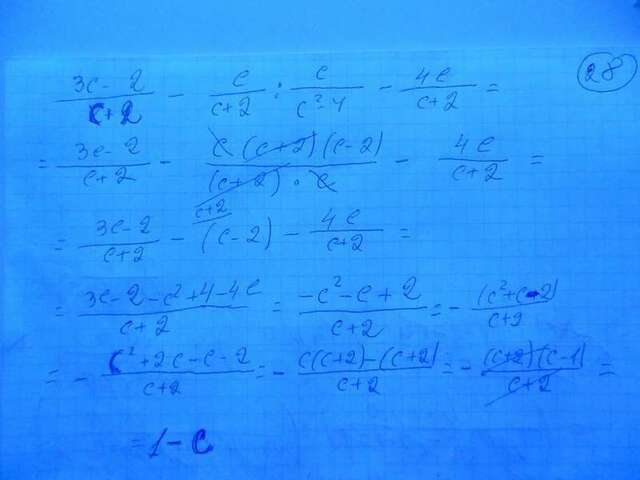 (3c-2)/(c+2) - c/(c+2) : c/(c²-4) - 4c/(c+2) = 28
= (3c-2)/(c+2) - (c(c+2)(c-2))/((c+2)·c) - 4c/(c+2) =
= (3c-2)/(c+2) - (c-2)^(c+2) - 4c/(c+2) =
= (3c-2-c²+4-4c)/(c+2) = (-c²-c+2)/(c+2) = - (c²+c-2)/(c+2)
= - (c²+2c-c-2)/(c+2) = - (c(c+2)-(c+2))/(c+2) = - ((c+2)(c-1))/(c+2) =
= 1-c